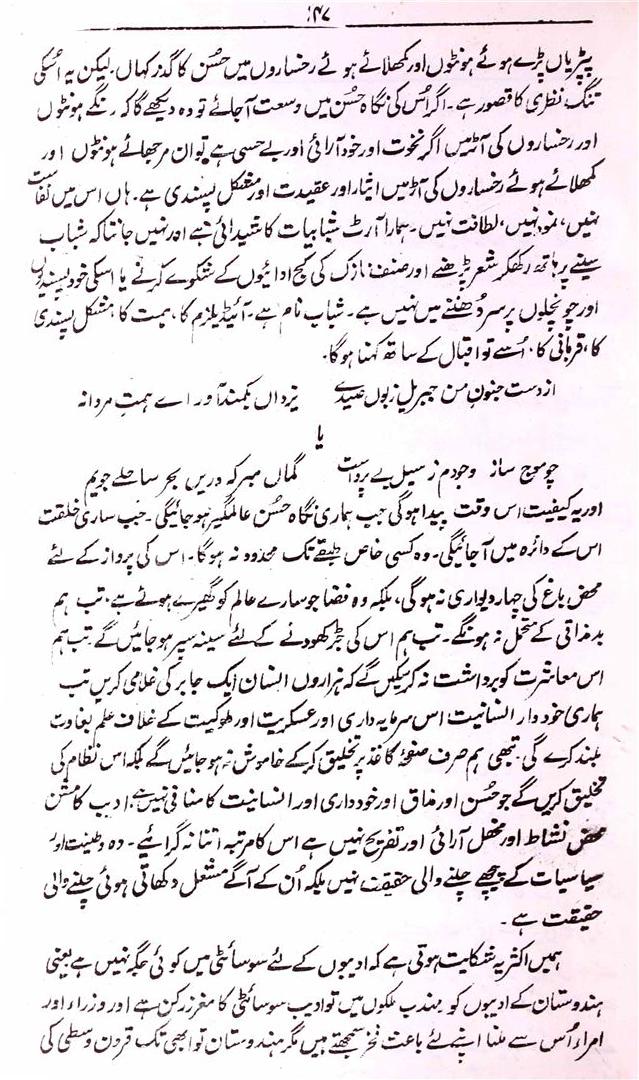 ۱۴۷
پپڑیاں پڑے ہوئے ہونٹوں اور کمھلائے ہوئے رخساروں میں حُسن کا گذر کہاں۔ لیکن یہ اُسکی
تنگ نظری کا قصور ہے۔ اگر اُس کی نگاہ حُسن میں وسعت آجائے تو وہ دیکھے گا کہ رنگے ہونٹوں
اور رخساروں کی آڑ میں اگر نخوت اور خود آرائی اور بے حسی ہے تو ان مرجھائے ہونٹوں اور
کمھلائے ہوئے رخساروں کی آڑ میں ایثار اور عقیدت اور مشکل پسندی ہے۔ ہاں اس میں نفاست
نہیں، نمود نہیں، لطافت نہیں۔ ہمارا آرٹ شبابیات کا شیدائی ہے اور نہیں جانتا کہ شباب
سینے پر ہاتھ رکھکر شعر پڑھنے اور صنف نازک کی کج ادائیوں کے شکوے کرنے یا اسکی خود پسندیوں
اور چونچلوں پر سر دُھننے میں نہیں ہے۔ شباب نام ہے۔ آئیڈیلزم کا، ہمت کا مشکل پسندی
کا، قربانی کا، اُسے تو اقبال کے ساتھ کہنا ہوگا۔
از دست جنونِ من جبریل زبوں صیدے یزداں بکمند آور اے ہمتِ مردانہ
یا
چو موج ساز وجودم ز سیل بے پرواست گماں مبر کہ دریں بحر ساحلے جویم
اور یہ کیفیت اس وقت پیدا ہوگی جب ہماری نگاہ حُسن عالمگیر ہو جائیگی۔ جب ساری خلقت
اس کے دائرہ میں آجائیگی۔ وہ کسی خاص طبقے تک محدود نہ ہوگا۔ اس کی پرواز کے لئے
محض باغ کی چہار دیواری نہ ہوگی، بلکہ وہ فضا جو سارے عالم کو گھیرے ہوئے ہے، تب ہم
بدمذاقی کے متحمل نہ ہونگے۔ تب ہم اس کی جڑ کھودنے کے لئے سینہ سپر ہو جائیں گے تب ہم
اس معاشرت کو برداشت نہ کر سکیں گے کہ ہزاروں انسان ایک جابر کی غلامی کریں تب
ہماری خوددار انسانیت اس سرمایہ داری اور عسکریت اور ملوکیت کے خلاف علم بغاوت
بلند کرے گی۔ تبھی ہم صرف صفحۂ کاغذ پر تخلیق کر کے خاموش نہ ہو جائیں گے بلکہ اس نظام کی
تخلیق کریں گے جو حُسن اور مذاق اور خودداری اور انسانیت کا منافی نہیں ہے۔ ادب کا مشن
محض نشاط اور محفل آرائی اور تفریح نہیں ہے اس کا مرتبہ اتنا نہ گرائیے۔ وہ وطنیت اور
سیاسیات کے پیچھے چلنے والی حقیقت نہیں بلکہ اُن کے آگے مشعل دکھاتی ہوئی چلنے والی
حقیقت ہے۔
ہمیں اکثر یہ شکایت ہوتی ہے کہ ادیبوں کے لئے سوسائٹی میں کوئی جگہ نہیں ہے یعنی
ہندوستان کے ادیبوں کو مہذب ملکوں میں تو ادیب سوسائٹی کا معزز رکن ہے اور وزراء اور
امراء اُس سے ملنا اپنے لئے باعث فخر سمجھتے ہیں مگر ہندوستان تو ابھی تک قرون وسطیٰ کی